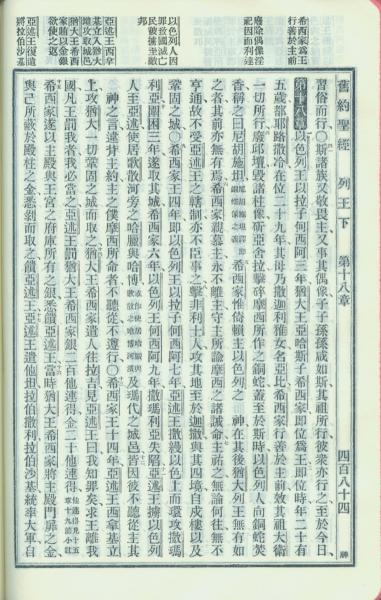 舊約聖經 列王下 第十八章 四百八十四 神
希西家為王
行善於主前
廢除偶像淫
祀因而利達
以色列人因
罪致國滅亡
民被擄至敵
邦
亞述王西拿
基立入猶大
境攻取城邑
猶大王希西
家賄以金銀
欲使之返
亞述王復遣
將拉伯沙基
習俗而行〇斯諸族又敬畏主又事其偶像子子孫孫咸如斯其祖所行彼衆亦行之至於今日
第十八章 以色列王以拉子何西阿三年猶大王亞哈斯子希西家即位為王即位時年二十有
五歲都耶路撒冷在位二十九年其母乃撒迦利雅女名亞比希西家行善於主前效其祖大衛
一切所行廢邱壇毀諸柱像斫亞舍拉擊碎摩西所作之銅蛇蓋至於斯時以色列人向銅蛇焚
香稱之曰尼胡施坦希西家惟倚賴主以色列之 神在其後猶大列王無有如
之者其前亦無有焉希西家親慕主永不離主守主所諭摩西之諸誡命主祐之無論何往無不
亨通故不受亞述王之轄制亦不臣事之擊非利士人攻其地至於迦撒與其四境自戍樓以及
鞏固之城〇希西家王四年即以色列王以拉子何西阿七年亞述王撒縵以色上而環攻撒瑪
利亞圍困三年遂取其城希西家六年以色列王何西阿九年撒瑪利亞失陷亞述王擄以色列
人至亞述使居歌散河旁之哈臘與哈博及瑪代之城邑皆因彼不聽從主其
神之言違幷主約主之僕摩西所命者不聽從不遵行〇希西家王十四年亞述王西拿基立
上攻猶大一切鞏固之城而取之猶大王希西家遣人往拉吉見亞述王曰我知罪矣求王離我
國凡王罰我者我必當之亞述王罰猶大王希西家銀二百他連得金二十他連得
希西家遂以主殿與王宮之府庫所有之銀悉饋亞述王當時猶大王希西家將主殿門扉之金
與己所蔽於殿柱之金悉剝而取之饋亞述王亞述王遣他坦拉伯撒利拉伯沙基統率大軍自